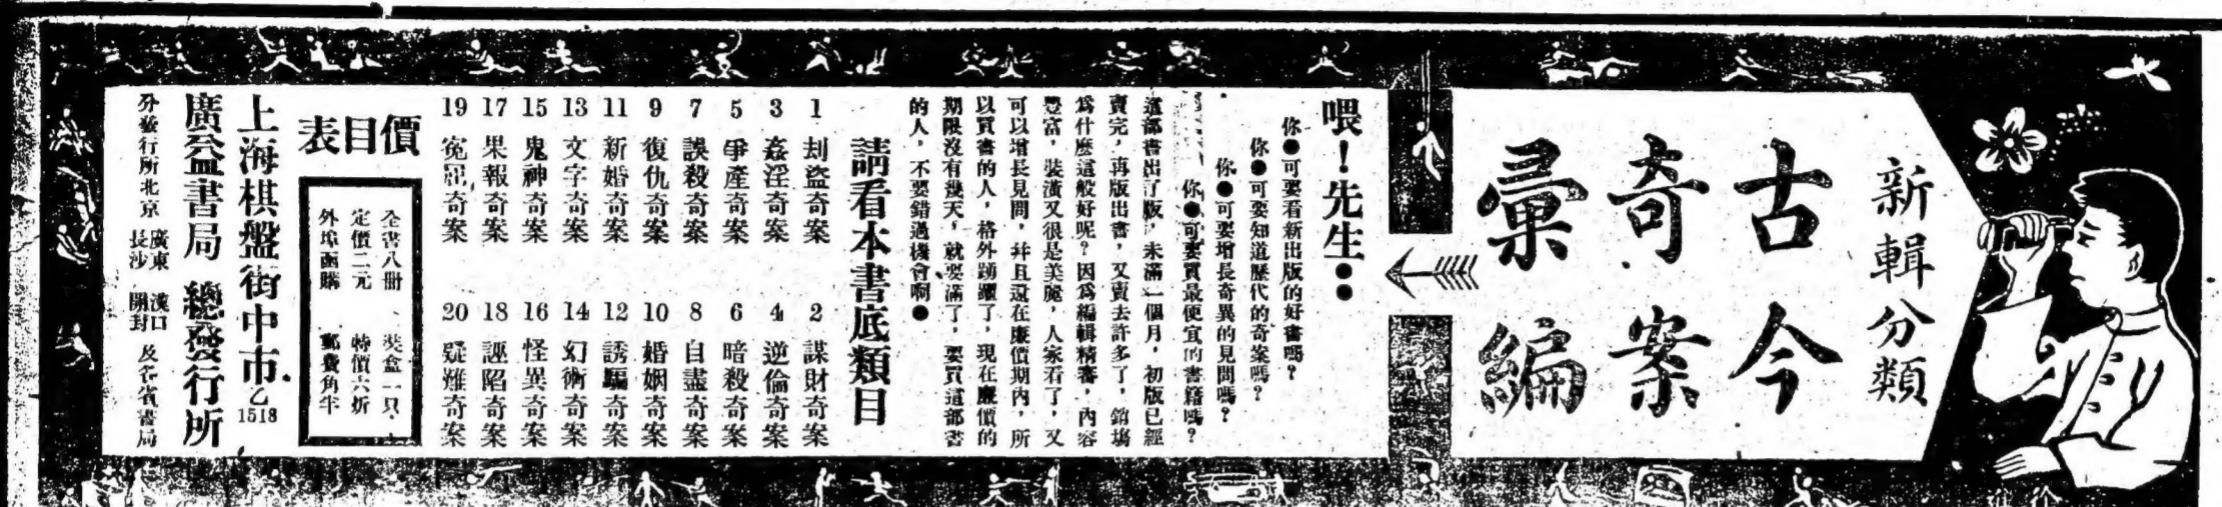 新輯分類
古今
奇案
彙編
喂！先生●●
你●可要看新出版的好書嗎？
你●可要知道歷代的奇案嗎？
你●可要增長奇異的見聞嗎？
你●可要買最便宜的書籍嗎？
這部書出了版，未滿一個月，初版已經
賣完，再版出書，又賣去許多了，銷塲
爲什麼這般好呢？因爲編輯精審，內容
豐富，裝潢又很是美麗，人家看了，又
可以增長見聞，幷且還在廉價期內，所
以買書的人，格外踴躍了，現在廉價的
期限沒有幾天，就要滿了，要買這部書
的人，不要錯過機會啊●
請看本書底類目
1 刦盜奇案 2 謀財奇案
3 姦淫奇案 4 逆倫奇案
5 爭產奇案 6 暗殺奇案
7 誤殺奇案 8 自盡奇案
9 復仇奇案 10 婚姻奇案
11 新婚奇案 12 誘騙奇案
13 文字奇案 14 幻術奇案
15 鬼神奇案 16 怪異奇案
17 果報奇案 18 誣陷奇案
19 寃屈奇案 20 疑難奇案
價目表
全書八冊 裝盒一只
定價二元 特價六折
外埠函購 郵費角半
上海棋盤街中市 乙1518
廣益書局 總發行所
分發行所北京 廣東 長沙 漢口 開封 及各省書局